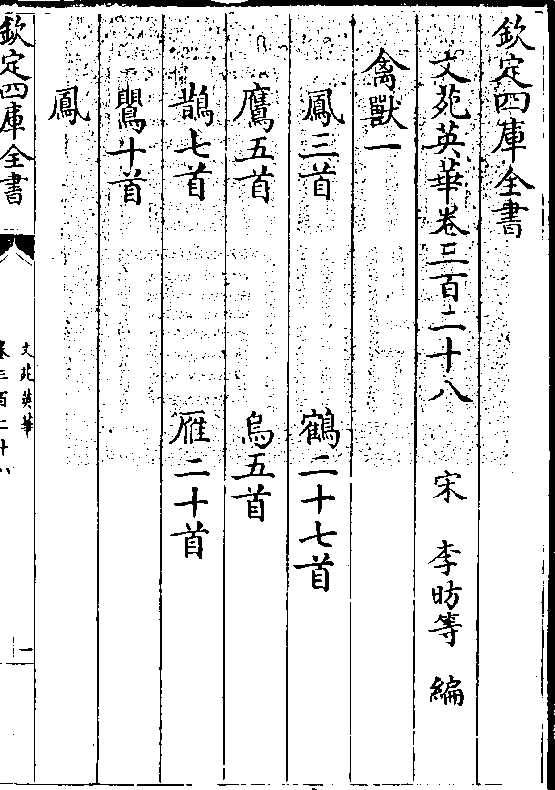 欽定四庫全書
文苑英華卷三百二十八
宋 李昉等 編
禽獸一
鳳三首 鶴二十七首
鷹五首 烏五首
鵲七首 雁二十首
鸎十首
鳳
欽定四庫全書
文苑英華
卷三百二十八
一